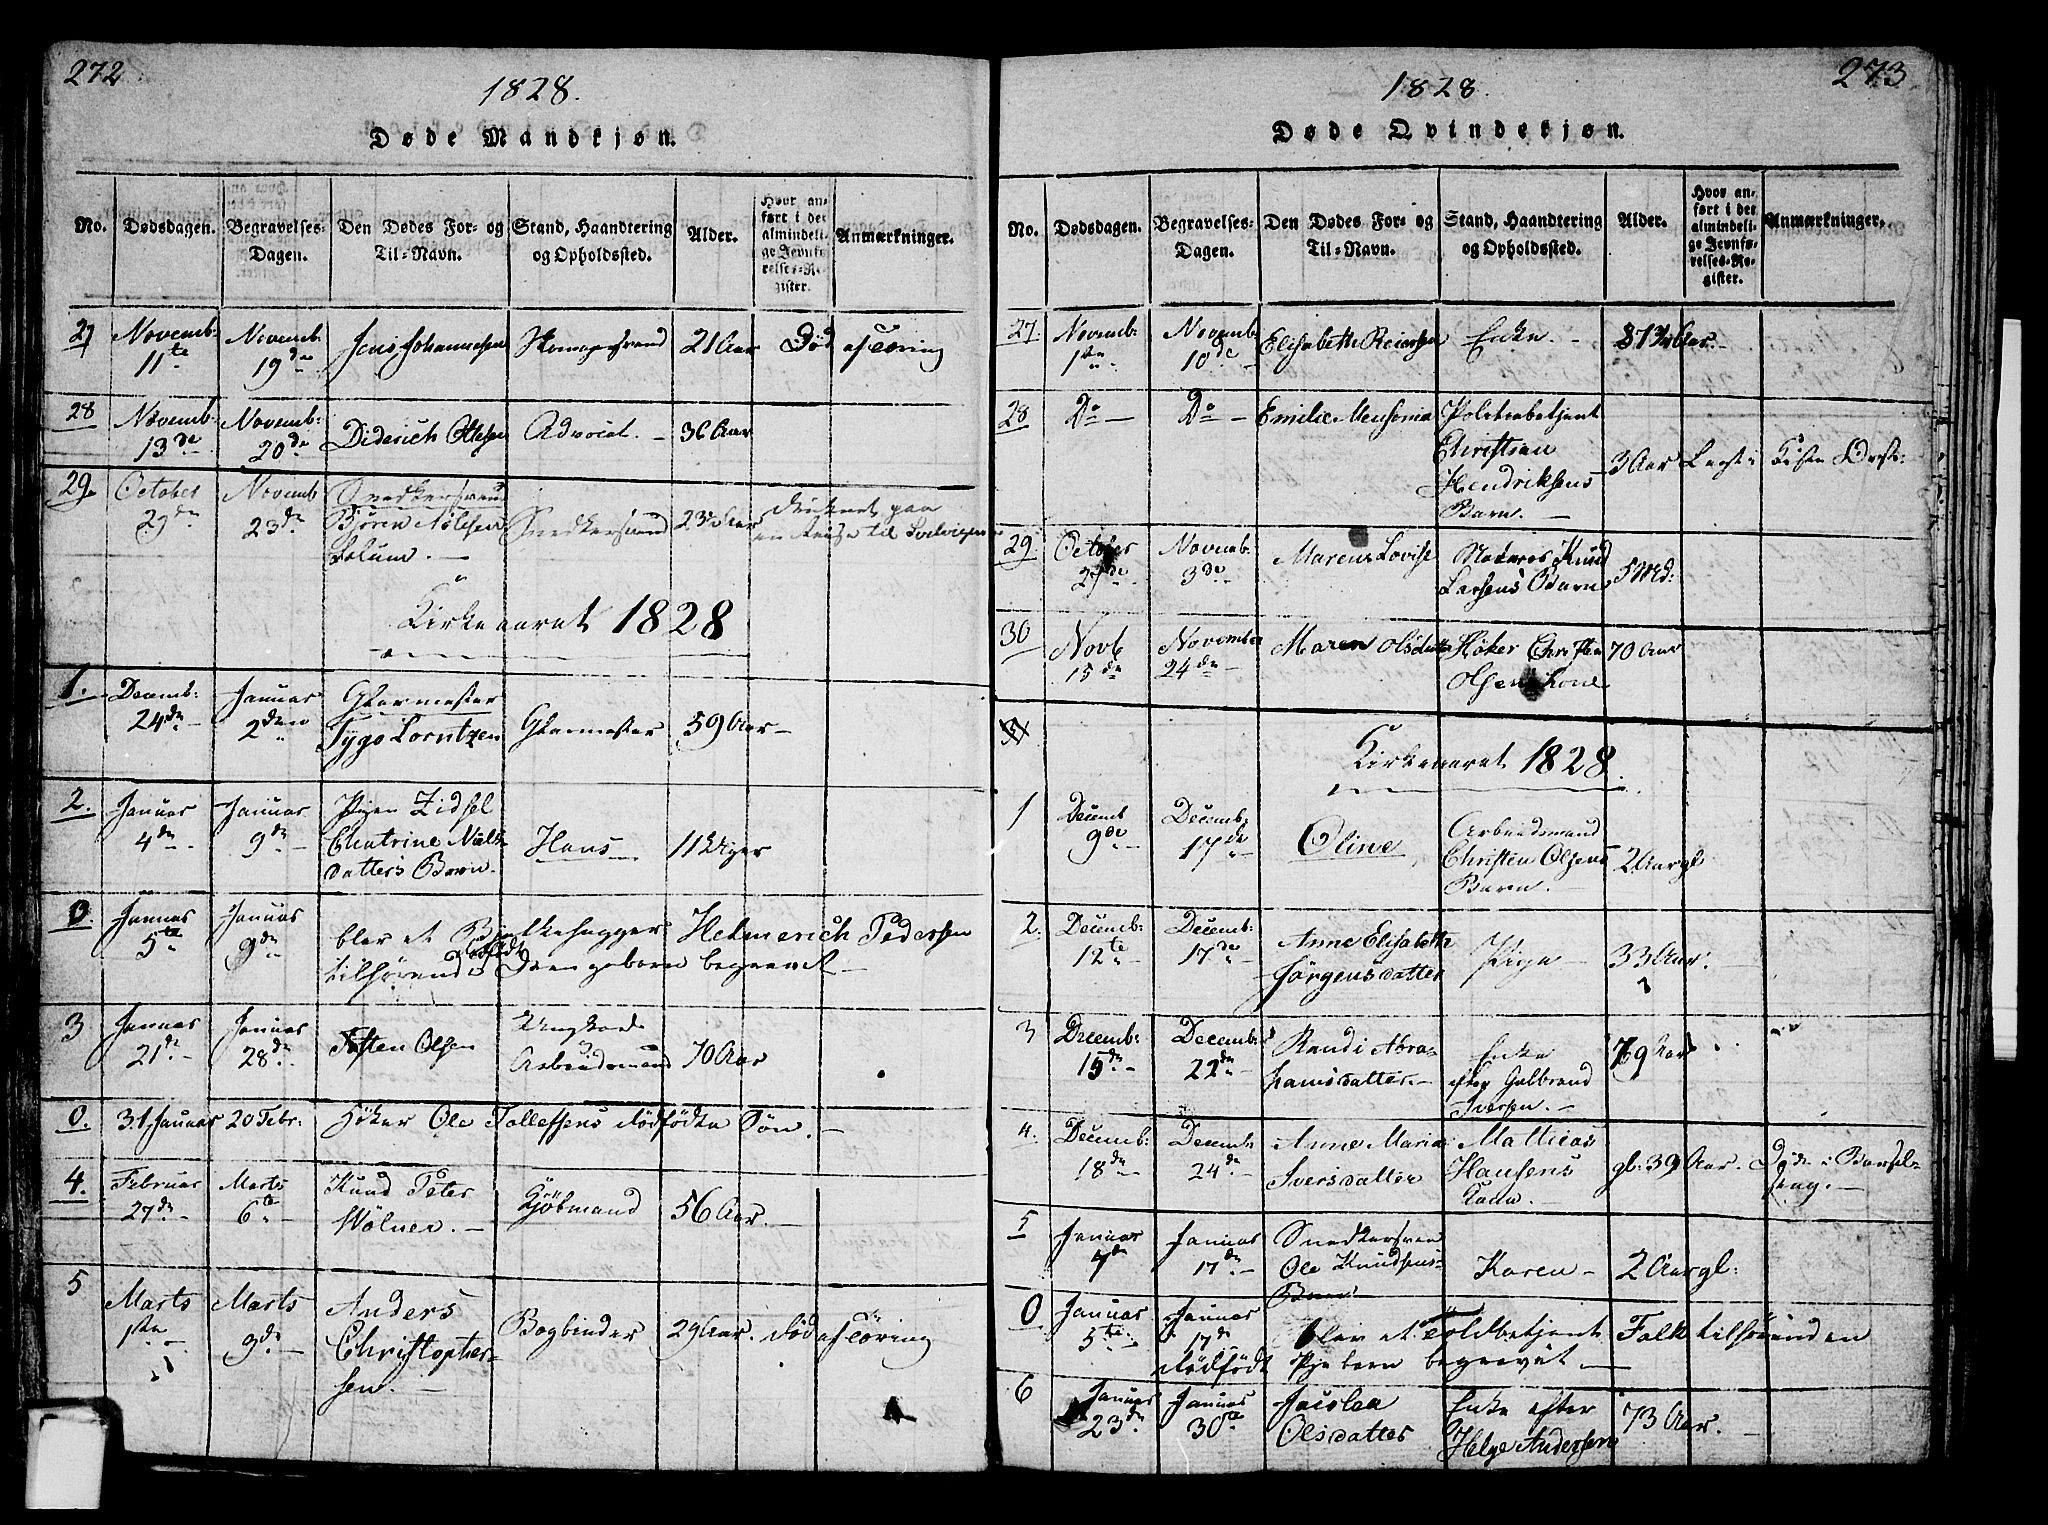 272
1828.
Døde Mandkjøn.
No.
Dødsdagen.
Begravelses-
Dagen.
Den Dødes For- og
Til-Navn.
Stand, Haandtering
og Opholdssted.
Alder.
Hvor an-
ført i det
almindeli-
ge Jevnfø-
relses-Re-
gister.
Anmærkninger.
27 Novemb: 11te Novemb: 19de Jens Johannesen 21 Aar Død af Tæring
28 Novemb: 13de Novemb: 20de Diderich Ottesen Advocat. 36 Aar
29. October 29de Novemb 23de Snedkersvend
Björen Nilsen
Snedkersvend
Druknet paa
en Reise til
Kirkeaaret 1828
1. Decemb: 24de Januar 2den Glarmester
Tygo Lorntzen Glarmester 59 Aar
2. Januar 4de Januar 9de Pigen Zidsel
Chatrine Niels-
datters Barn. Hans 11 Uger
0. Januar 5te Januar 9de blev et Helmerich Pedersen
tilhørende dødfødt Drengebarn begravet
3 Januar 21de Januar 28de Tosten Olsen
Arbeidsmand 70 Aar
0. 31 Januar 20 Febr: Höker Ole Tollefsens dödfödte Sön.
4. Februar 27de Marts 6te Knud Peter
Wölner. Kjöbmand 56 Aar.
5 Marts 1ste Marts 9de Anders
Christopher-
sen. Bogbinder 29 Aar. död af Tæring
273
1828.
Døde Qvindekjøn.
No.
Dødsdagen.
Begravelses-
Dagen.
Den Dødes For- og
Til-Navn.
Stand, Haandtering
og Opholdssted.
Alder.
Hvor an-
ført i det
almindeli-
ge Jevnfø-
relses-Re-
gister.
Anmærkninger.
27. Novemb: 1ste Novemb: 10de Elisabeth Reiersen Enke.
28 Do Do Emilie Politiebetjent
Christian
Hendriksens
Barn. 3 Aar
29. October 29de Novemb: 3de Maren Lovise Knud
Larsens Barn 5 Md:
30 Novb 15de November 24de Maren Olsdatter Höker Christen
Olsens Kone 70 Aar
Kirkeaaret 1828.
1 Decemb 9de Decemb: 17de Oline Arbeidsmand
Christen Olsens
Barn. 2 Aar gl.
2. Decemb: 12te Decemb: 17de Anne Elisabeth
Jørgensdatter Pige 33 Aar.
3 Decemb: 15de Decemb: 22de Randi Abra-
hamsdatter. Enke
efter Gulbrand
Iversen. 79 Aar
4. Decemb: 18de Decemb: 24de Anne Maria
Iversdatter Mathias
Hansens
Kone. gl: 39 Aar. Døde i Barsel-
seng.
5 Januar 7de Januar 17de Snedkersvend
Ole Knudsens
Barn Karen 2 Aar gl:
0 Januar 5te Januar 17de blev et Toldbetjent Falk tilhörenden
dödfödt Pigebarn begravet.
6 Januar 23de Januar 30te
Olsdatter Enke efter
Helge Andersen 73 Aar.